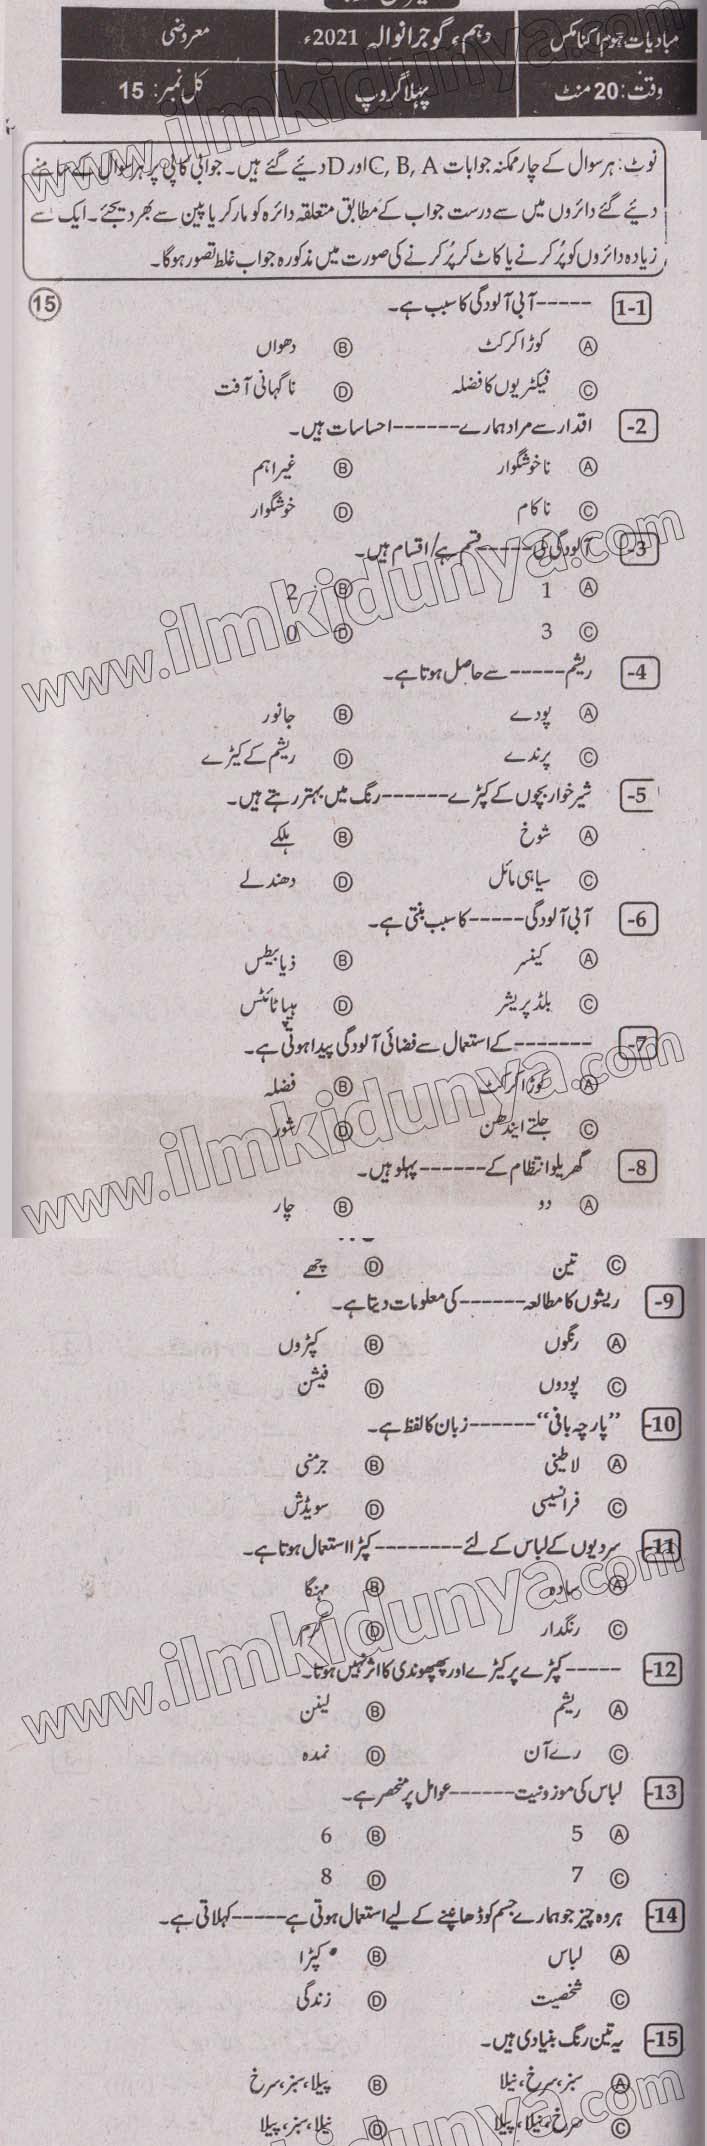 مبادیات ہوم اکنامکس
دہم، گوجرانوالہ 2021ء
معروضی
وقت: 20 منٹ
پہلا گروپ
کل نمبر: 15
نوٹ: ہر سوال کے چار ممکنہ جوابات C, B, A اور D دیئے گئے ہیں۔ جوابی کاپی پر ہر سوال کے سامنے
دیئے گئے دائروں میں سے درست جواب کے مطابق متعلقہ دائرہ کو مارکر یا پین سے بھر دیجئے۔ ایک سے
زیادہ دائروں کو پُر کرنے یا کاٹ کر پُر کرنے کی صورت میں مذکورہ جواب غلط تصور ہوگا۔
1-1 ----- آبی آلودگی کا سبب ہے۔ 15
A کوڑا کرکٹ B دھواں
C فیکٹریوں کا فضلہ D ناگہانی آفت
-2 اقدار سے مراد ہمارے ------ احساسات ہیں۔
A ناخوشگوار B غیر اہم
C ناکام D خوشگوار
-3 آلودگی کی ----- قسم ہے/اقسام ہیں۔
A 1 B 2
C 3 D 0
-4 ریشم ----- سے حاصل ہوتا ہے۔
A پودے B جانور
C پرندے D ریشم کے کیڑے
-5 شیر خوار بچوں کے کپڑے ------ رنگ میں بہتر رہتے ہیں۔
A شوخ B ہلکے
C سیاہی مائل D دھندلے
-6 آبی آلودگی ----- کا سبب بنتی ہے۔
A کینسر B ذیابیطس
C بلڈ پریشر D ہیپاٹائٹس
-7 ------- کے استعمال سے فضائی آلودگی پیدا ہوتی ہے۔
A کوڑا کرکٹ B فضلہ
C جلتے ایندھن D شور
-8 گھریلو انتظام کے ------ پہلو ہیں۔
A دو B چار
C تین D چھے
-9 ریشوں کا مطالعہ ------ کی معلومات دیتا ہے۔
A رنگوں B کپڑوں
C پودوں D فیشن
-10 ”پارچہ بافی“ ------ زبان کا لفظ ہے۔
A لاطینی B جرمنی
C فرانسیسی D سویڈش
-11 سردیوں کے لباس کے لئے -------- کپڑا استعمال ہوتا ہے۔
A سادہ B مہنگا
C رنگدار D گرم
-12 ----- کپڑے پر کیڑے اور پھپھوندی کا اثر نہیں ہوتا۔
A ریشم B لینن
C رے آن D نمدہ
-13 لباس کی موزونیت ------ عوامل پر منحصر ہے۔
A 5 B 6
C 7 D 8
-14 ہر وہ چیز جو ہمارے جسم کو ڈھانپنے کے لیے استعمال ہوتی ہے ----- کہلاتی ہے۔
A لباس B کپڑا
C شخصیت D زندگی
-15 یہ تین رنگ بنیادی ہیں۔
A سبز، سرخ، نیلا B پیلا، سبز، سرخ
C سرخ، نیلا، پیلا D نیلا، سبز، پیلا
www.ilmkidunya.com
www.ilmkidunya.com
www.ilmkidunya.com
www.ilmkidunya.com
www.ilmkidunya.com